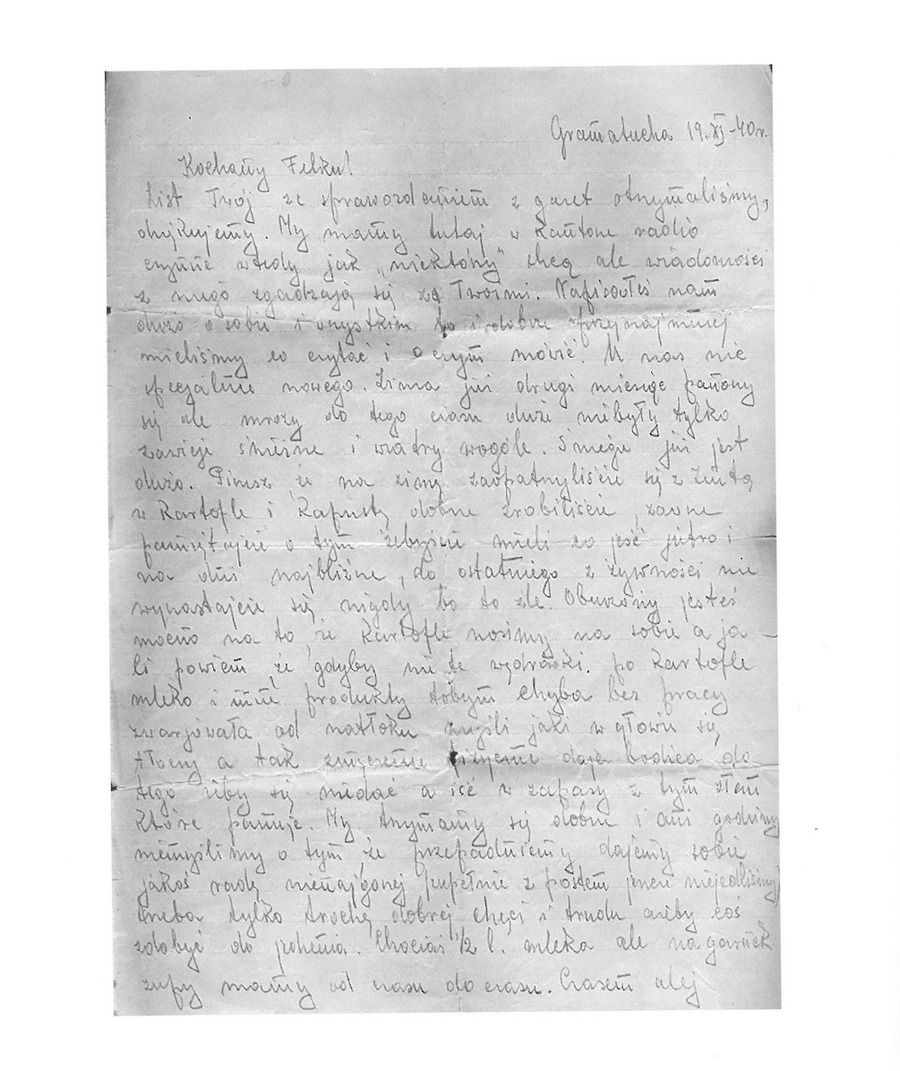 Gramatucha 19.XI-40r.
Kochany Felku!
List Twój ze sprawozdaniem z gazet otrzymaliśmy,
dziękujemy. My mamy tutaj w Kantorze radio
czynne wtedy jak „niektórzy" chcą ale wiadomości
z niego zgadzają się za Twoimi. Napisałeś nam
dużo o sobie i wszystkim to i dobrze przynajmniej
mieliśmy co czytać i o czym mówić. U nas nic
specjalnie nowego. Zima już drugi miesiąc panoszy
się ale mrozy do tego czasu duże niebyły tylko
zawieje śnieżne i wiatry wogóle. Śniegu już jest
dużo. Piszesz że na zimę zaopatrzyliście się z Ziutą
w Kartofle i Kapustę dobrze zrobiliście, zawsze
pamiętajcie o tym żebyście mieli co jeść jutro i
na dni najbliższe, do ostatniego z żywności nie
wyrastajcie się nigdy bo to źle. Oburzony jesteś
mocno na to, że Kartofle nosimy na sobie a ja
Ci powiem że gdyby nie te wędrówki po kartofle
mleko i inne produkty tobym chyba bez pracy
zwarjowała od natłoku myśli jaki w głowie się
tłoczy a tak zmęczenie fizyczne daje bodźca do
tego żeby się niedać a iść w zapasy z tym złem
które panuje. My trzymamy się dobrze i ani godziny
niemyślimy o tym że przepadniemy dajemy sobie
jakoś radę nienajgorzej zupełnie z postem jeszcze niejedliśmy
trzeba tylko trochę dobrej chęci i trudu ażeby coś
zdobyć do jedzenia. Chociaż 1/2 l. mleka ale na garnek
zupy mamy od czasu do czasu. Czasem olej